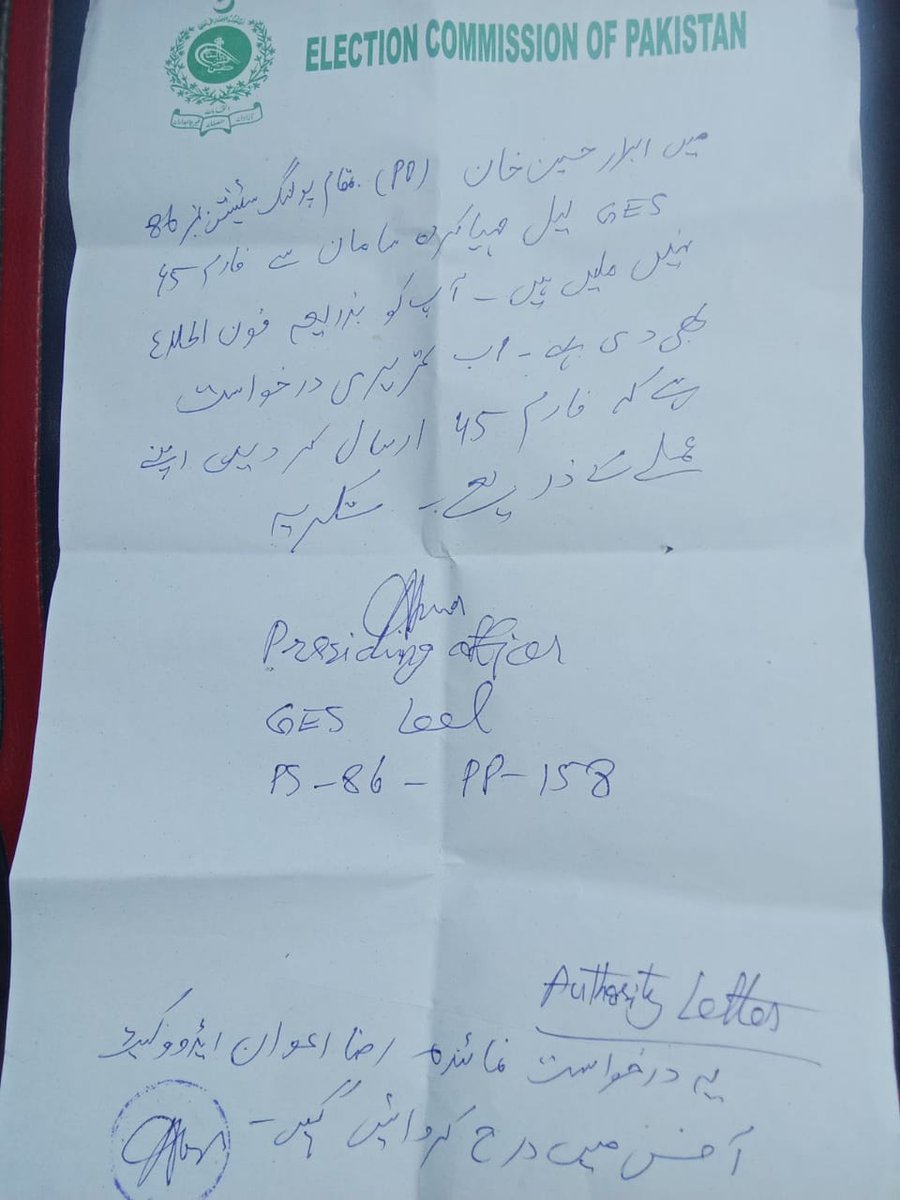 ELECTION COMMISSION OF PAKISTAN
میں ابرار حسین خان (PO) بمقام پولنگ سٹیشن نمبر 86
GES لیل مہیا کردہ سامان سے فارم 45
نہیں ملیں ہیں - آپ کو بذریعہ فون اطلاع
بھی دی ہے - اب تحریری درخواست
ہے کہ فارم 45 ارسال کر دیں اپنے
عملے کے ذریعے - شکریہ
Presiding officer
GES Leel
PS-86 - PP-158
Authority Letter
یہ درخواست نمائندہ رضا اعوان ایڈووکیٹ
آفس میں درج کروائیں گیں -